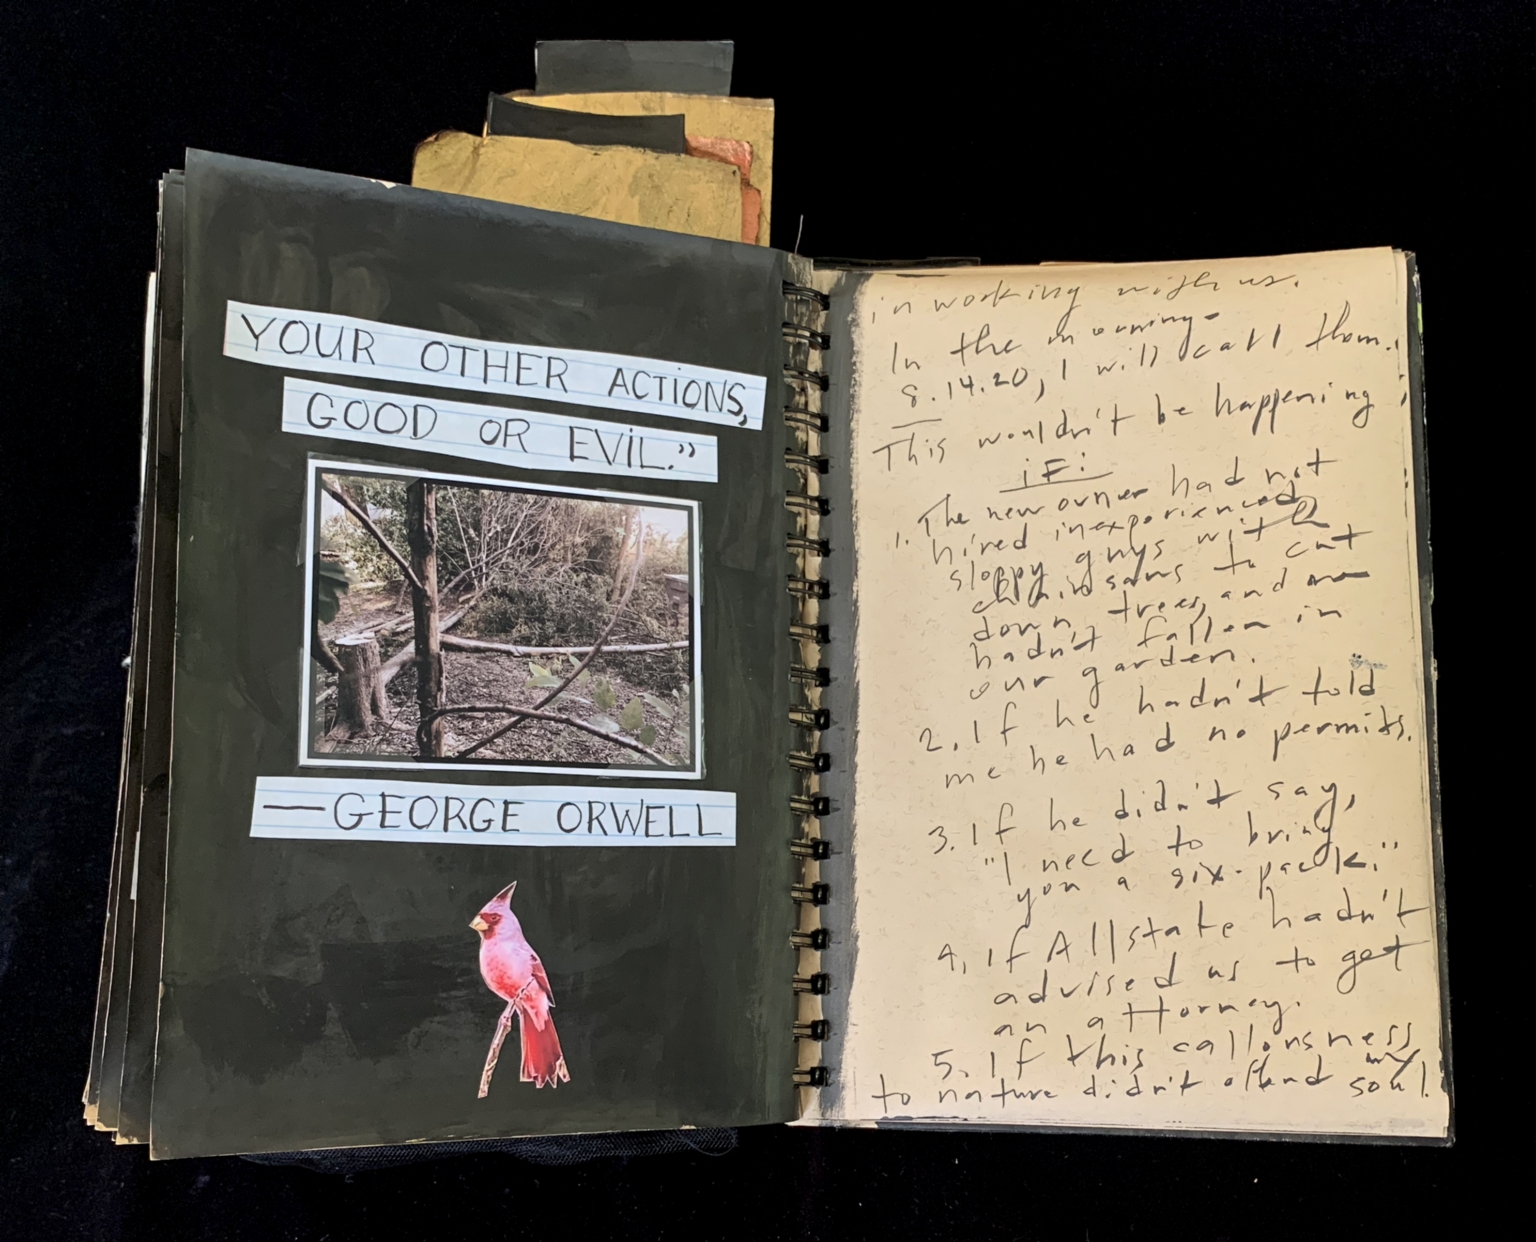 YOUR OTHER ACTIONS,
GOOD OR EVIL.”
—GEORGE ORWELL
in working with us.
In the morning-
8.14.20, I will call them.
This wouldn't be happening
iF:
1. The new owner had not
hired inexperienced
sloppy guys with
chainsaws to cut
down trees, and
hadn't fallen in
our garden.
2. If he hadn't told
me he had no permits.
3. If he didn't say,
"I need to bring
you a six-pack."
4. If Allstate hadn't
advised us to get
an attorney.
5. If this callousness
to nature didn't offend my soul.